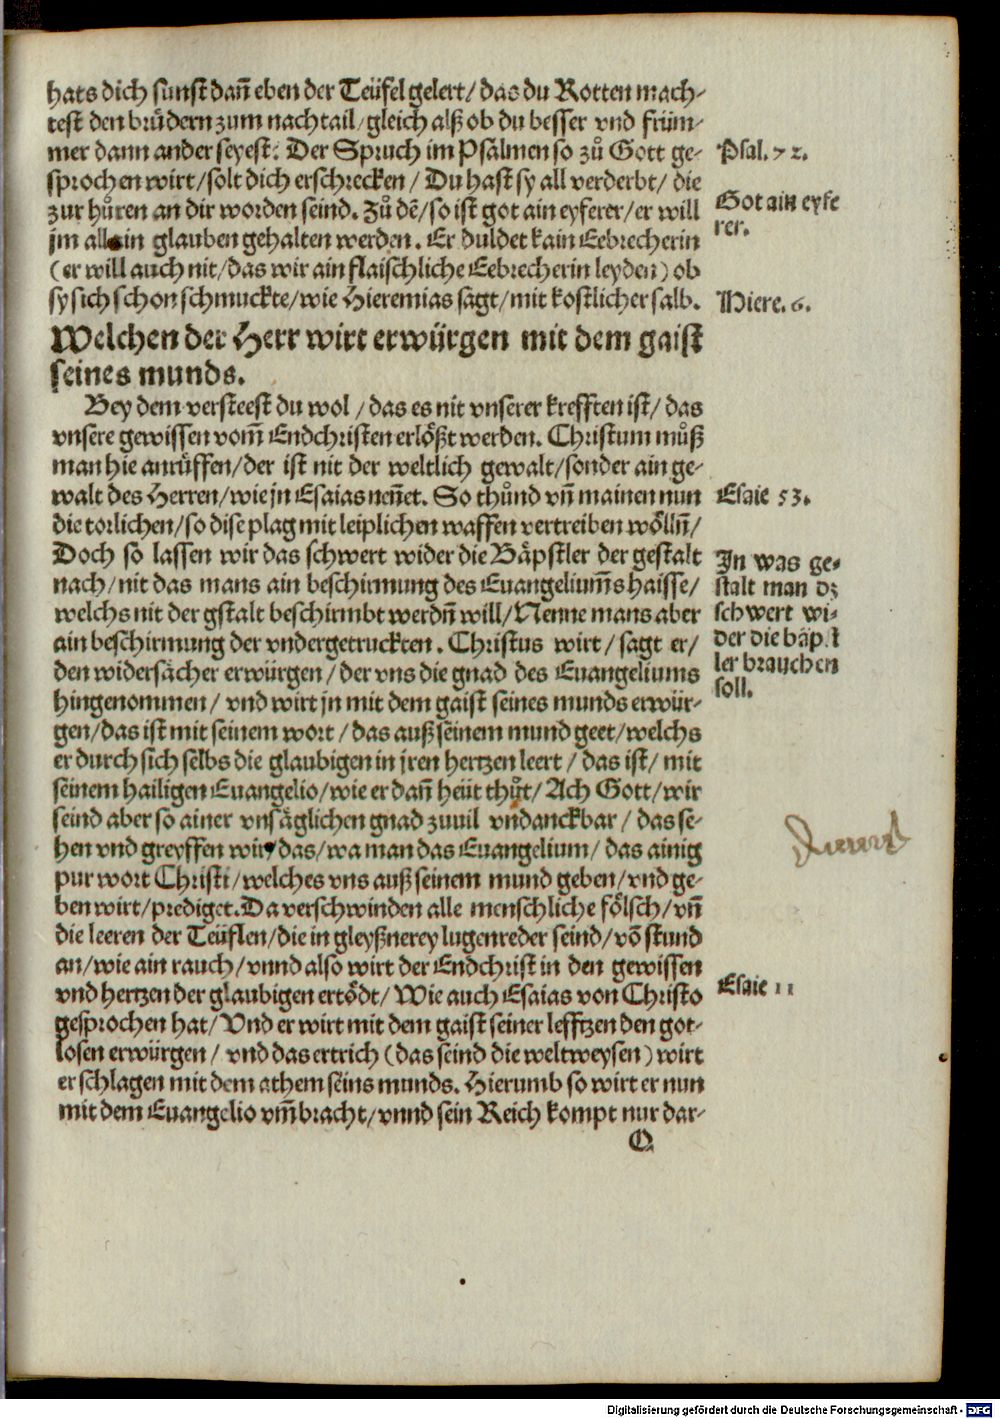 hats dich sunst dañ eben der Teüfel gelert/ das du Rotten mach-
test den brůdern zum nachtail/ gleich alß ob du besser vnd früm-
mer dann ander seyest: Der Spruch im Psalmen so zů Gott ge-
sprochen wirt/ solt dich erschrecken/ Du hast sy all verderbt/ die
zur hůren an dir worden seind. Zů dẽ/ so ist got ain eyferer/ er will
jm allain glauben gehalten werden. Er duldet kain Eebrecherin
(er will auch nit/ das wir ain flaischliche Eebrecherin leyden) ob
sy sich schon schmuckte/ wie Hieremias sagt/ mit kostlicher salb.
Psal. 72.
Got ain eyfe
rer.
Hiere. 6.
Welchen der Herr wirt erwürgen mit dem gaist
seines munds.
Bey dem versteest du wol/ das es nit vnserer krefften ist/ das
vnsere gewissen vom̃ Endchristen erlößt werden. Christum můß
man hie anrüffen/ der ist nit der weltlich gewalt/ sonder ain ge-
walt des Herren/ wie jn Esaias neñet. So thůnd vñ mainen nun
die torlichen/ so dise plag mit leiplichen waffen vertreiben wöllñ/
Doch so lassen wir das schwert wider die Bäpstler der gestalt
nach/ nit das mans ain beschirmung des Euangeliums̃ haisse/
welchs nit der gstalt beschirmbt werdñ will/ Nenne mans aber
ain beschirmung der vndergetruckten. Christus wirt/ sagt er/
den widersächer erwürgen/ der vns die gnad des Euangeliums
hingenommen/ vnd wirt jn mit dem gaist seines munds erwür-
gen/ das ist mit seinem wort/ das auß seinem mund geet/ welchs
er durch sich selbs die glaubigen in jren hertzen leert/ das ist/ mit
seinem hailigen Euangelio/ wie er dañ heüt thůt/ Ach Gott/ wir
seind aber so ainer vnsäglichen gnad zuuil vndanckbar/ das se-
hen vnd greyffen wir/ das/ wa man das Euangelium/ das ainig
pur wort Christi/ welches vns auß seinem mund geben/ vnd ge-
ben wirt/ prediget. Da verschwinden alle menschliche fölsch/ vñ
die leeren der Teüflen/ die in gleyßnerey lugenreder seind/ võ stund
an/ wie ain rauch/ vnnd also wirt der Endchrist in den gewissen
vnd hertzen der glaubigen ertödt/ Wie auch Esaias von Christo
gesprochen hat/ Vnd er wirt mit dem gaist seiner lefftzen den got-
losen erwürgen/ vnd das ertrich (das seind die weltweysen) wirt
er schlagen mit dem athem seins munds. Hierumb so wirt er nun
mit dem Euangelio vm̃bracht/ vnnd sein Reich kompt nur dar-
Q
Esaie 53.
In was ge-
stalt man dz
schwert wi-
der die bäpst
ler brauchen
soll.
Esaie 11
Digitalisierung gefördert durch die Deutsche Forschungsgemeinschaft - DFG